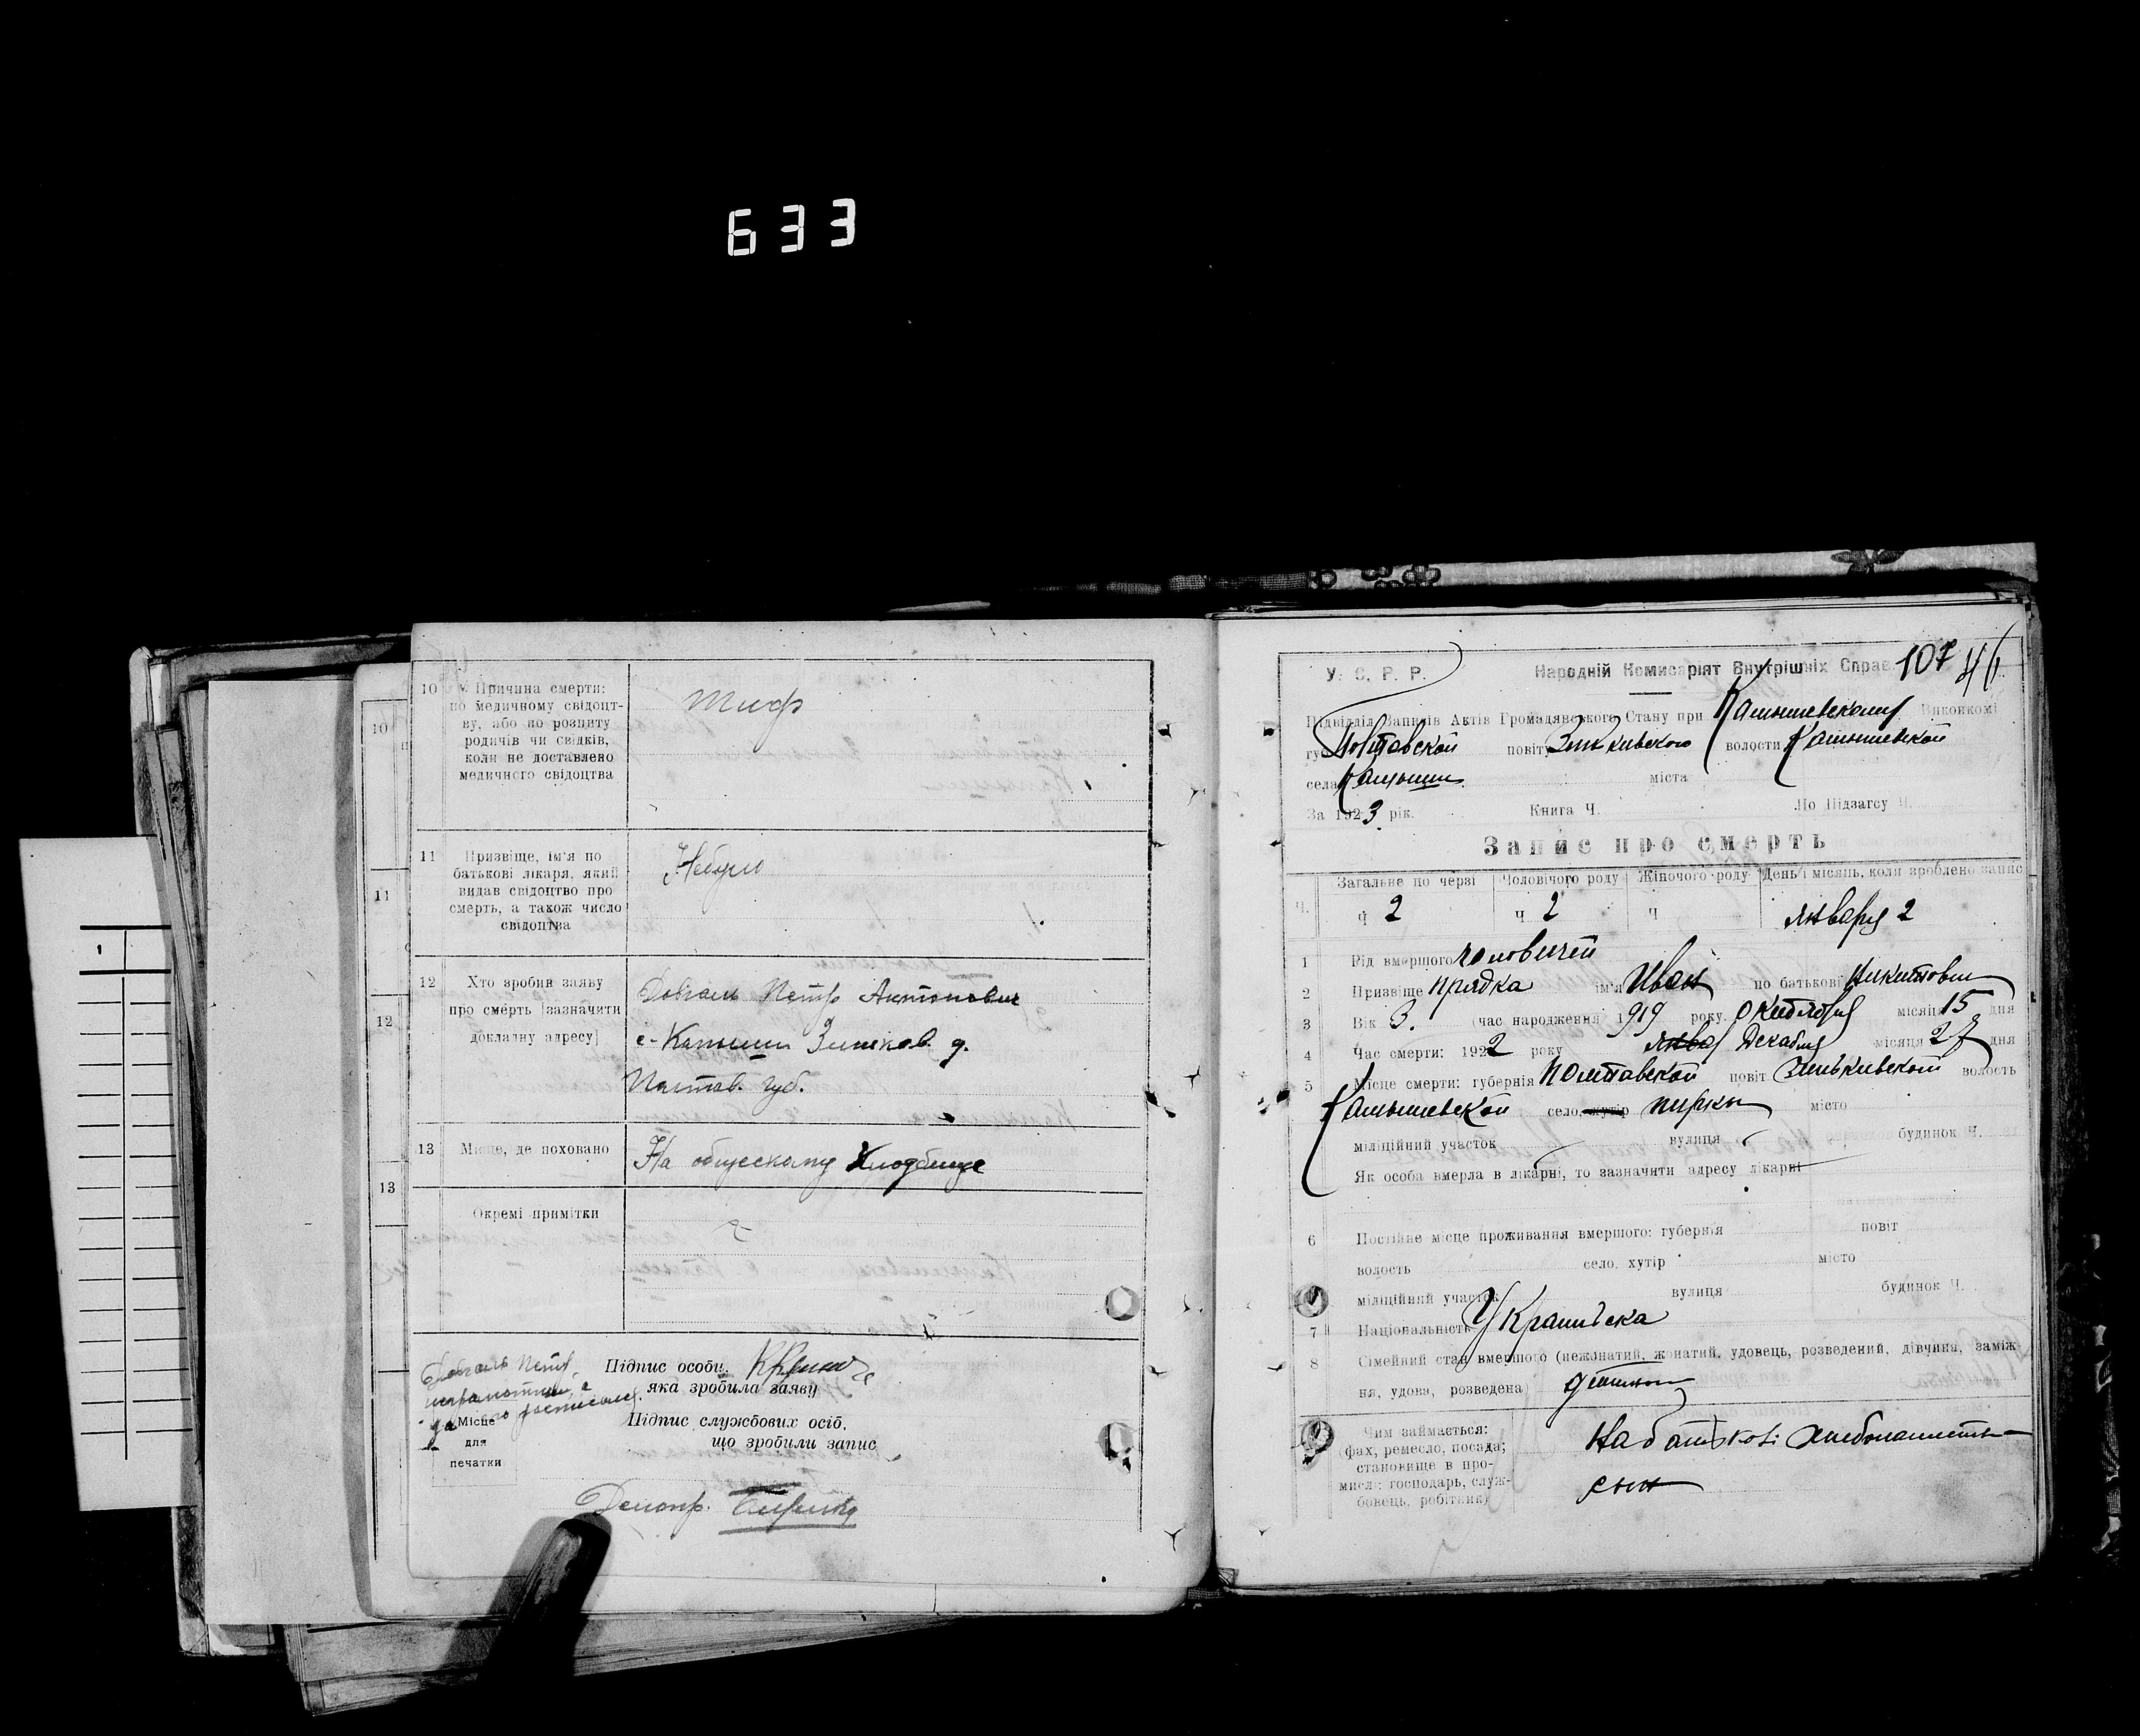 633
10
Причина смерти:
по медичному свідоцт-
ву, або по розпиту
родичів чи свідків,
коли не доставлено
медичного свідоцтва
Тиф
11
Призвіще, ім'я по
батькові лікаря, який
видав свідоцтво про
смерть, а також число
свідоцтва
Небуло
12
Хто зробив заяву
про смерть [зазначити
докладну адресу]
Довгаль Петр Антонович
с-Камыши Зиньков. у.
Полтав. губ.
13
Місце, де поховано
На общескому Кладбище
Окремі примітки
Довгаль Петр
неграмотный, а
за него росписался
Підпис особи,
яка зробила заяву
Підпис службових осіб,
що зробили запис
Місце
для
печатки
Делопр.
10
11
12
13
1
107 46
У. С. Р. Р.
Народній Комисаріят Внутрішніх Справ
Підвідділ Записів Актів Громадянського Стану при Камышевскому Виконкомі
губ Полтавской повіту Зиньківского волости Камышевской
села Камыши міста
За 1923 рік. Книга Ч. По Підзагсу Ч.
Запис про смерть
Ч. Загальне по черзі Чоловічого роду Жіночого роду День і місяць, коли зроблено запис
Ч 2 Ч 2 Ч Января 2
1 Рід вмершого Чоловичей
2 Призвіще Прядка ім'я Иван по батькові Никитович
3 Вік 3. (час народження 1919 року Октября місяця 15 дня
4 Час смерти: 1922 року Янва Декабря місяця 27 дня
5 Місце смерти: губернія Полтавской повіт Зиньківской волость
Камышевской село, хутір Пирки місто
міліційний участок вулиця будинок Ч.
Як особа вмерла в лікарні, то зазначити адресу лікарні
6 Постійне місце проживання вмершого: губернія повіт
волость село, хутір місто
міліційний участок вулиця будинок Ч.
7 Національність Украинска
8 Сімейний стан вмершого (нежонатий, жонатий, удовець, розведений, дівчина, заміж
ня, удова, розведена
9
Чим займається:
(фах, ремесло, посада;
становище в про-
мислі: господарь, служ-
бовець, робітник)
На батькові хлебопашеств
сын